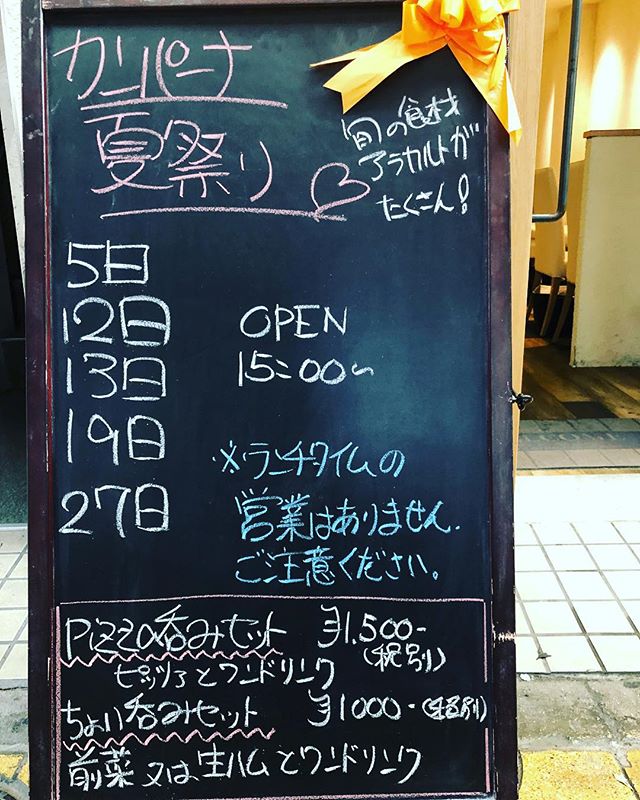 カンパーナ
夏祭り
旬の食材
アラカルトが
たくさん!
5日
12日
13日
19日
27日
OPEN
15:00~
※ランチタイムの
営業はありません.
ご注意ください。
Pizza呑みセット ¥1,500-
(税別)
ピッツァとワンドリンク
ちょい呑みセット ¥1000-(税別)
前菜又は生ハムとワンドリンク